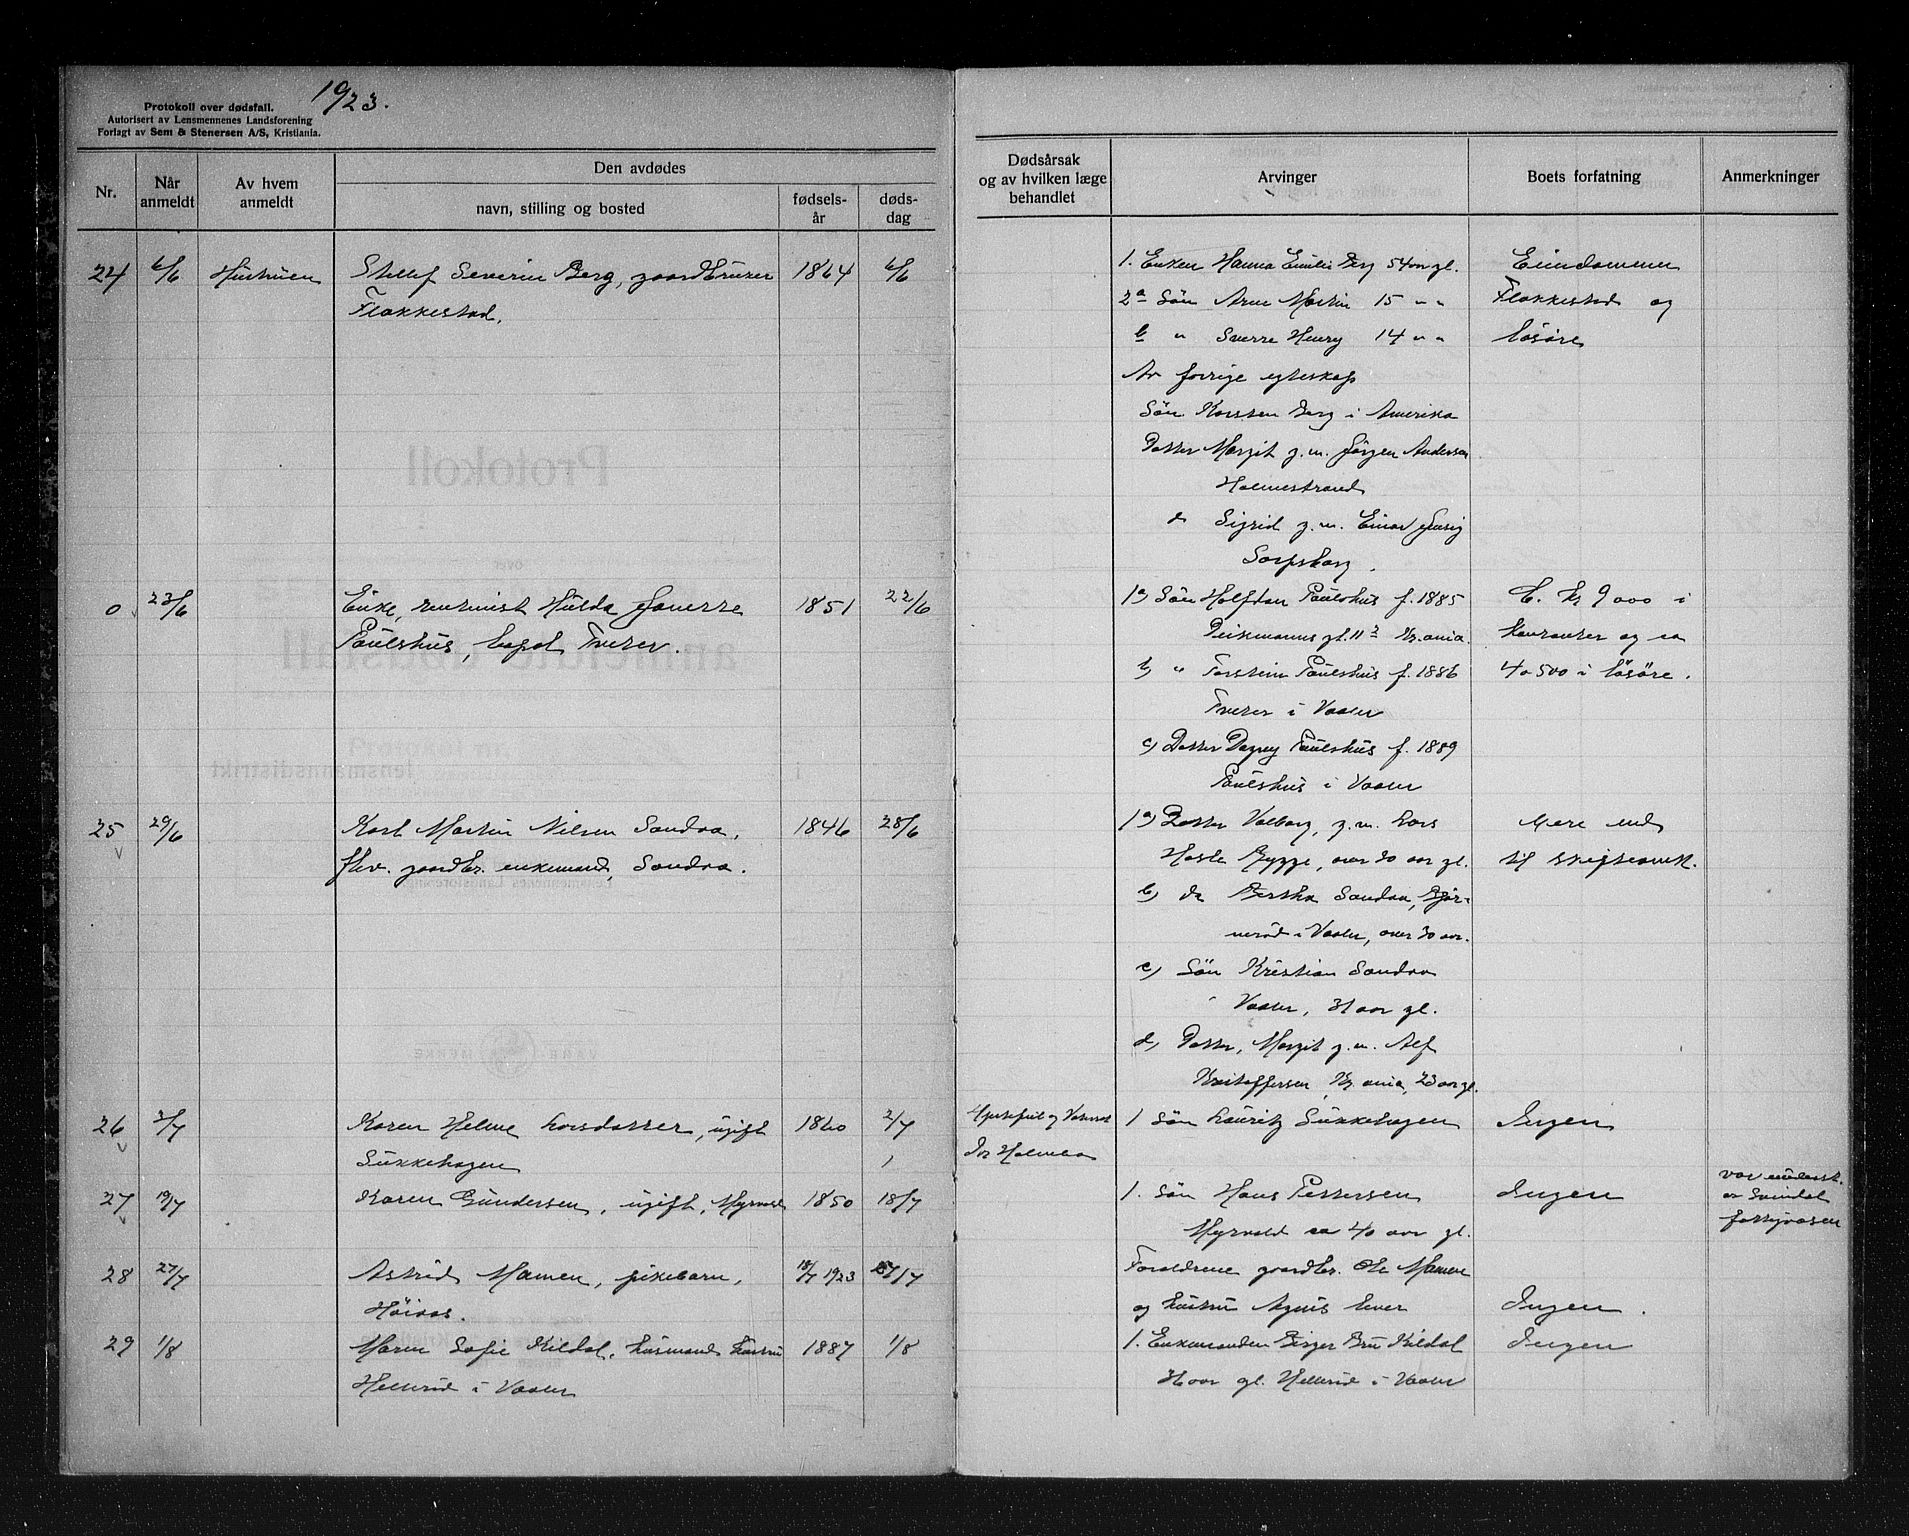 1923.
Protokoll over dødsfall.
Autorisert av Lensmennenes Landsforening
Forlagt av Sem & Stenersen A/S, Kristiania.
Nr.
Når anmeldt
Av hvem anmeldt
Den avdødes
navn, stilling og bosted
fødsels-år
døds-dag
Dødsårsak og av hvilken læge behandlet
Arvinger
Boets forfatning
Anmerkninger
24 6/6 Hustruen Severin Berg, gaardbruker 1864 6/6
Flakkestad.
1. Enken Hanna Emilie Berg 54 aar gl.
2a Søn Arne Martin 15 " "
b " Sverre Henry 14 " "
Av forrige egteskap
Søn Karsten Berg i Amerika
Datter Margit g.m. Jørgen Andersen
Holmestrand
do Sigrid g.m. Einar
Sarpsborg.
Eiendommen
Flakkestad og
løsøre
0 23/6 Enke, rentenist Hulda 1851 22/6
Paulshus, Tveter.
1a) Søn Halfdan Paulshus f. 1885
Deikmannsgt. 11 Kr.ania.
b) " Torstein Paulshus f. 1886
Tveter i Vaaler
c) Datter Dagny Paulshus f. 1889
Paulshus i Vaaler
C. kr 9000 i
kontanter og ca
4 a 500 i løsøre.
25 29/6 Karl Martin Nilsen Sandaa, 1846 28/6
fhv. gaardbr. enkemand, Sandaa.
1a) Datter Valborg, g.m. Lars
Hasle Rygge, over 30 aar gl.
b) do Bertha Sandaa, Bjør-
nerød i Vaaler, over 30 aar.
c) Søn Kristian Sandaa
i Vaaler, 31 aar gl.
d) Datter, Margit g.m. Alf
Kristoffersen, Kr.ania, 23 aar gl.
Mere end
til
26 3/7 Karen Helene Larsdatter, ugift 1860 2/7
Sukkehagen
Hjertefeil og
Dr Holmboe
1 Søn Lauritz Sukkehagen
Ingen
27 19/7 Karen Gundersen, ugift, Myrvold 1850 18/7
1. Søn Hans Pettersen
Myrvold ca 40 aar gl.
Ingen
var underst.
av Svindal
fattigvæsen
28 27/7 Astrid Mamen, pikebarn, 18/7 1923 /7
Høiaas.
Forældrene gaardbr. Ole Mamen
og hustru Agnes lever
Ingen.
29 1/8 Maren Sofie Kildal, husmands hustru 1887 1/8
Hellerud i Vaaler
1. Enkemanden Birger Kildal
aar gl. Hellerud i Vaaler
Ingen